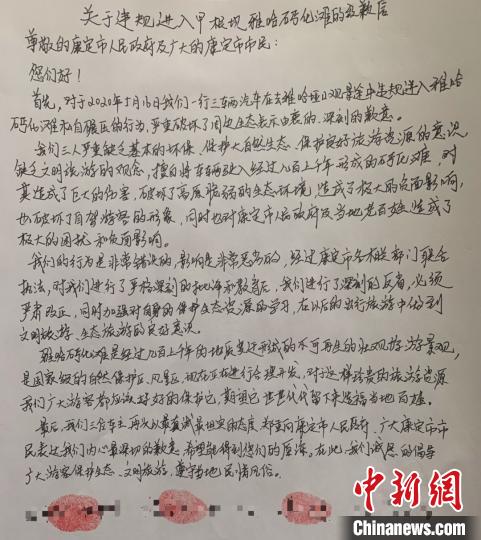 关于违规进入甲根坝雅哈钙化滩的致歉信
尊敬的康定市人民政府及广大的康定市市民：
您们好！
首先，对于2020年5月16日我们一行三辆汽车在去雅哈垭口观景途中违规进入雅哈
钙化滩私自碾压的行为，严重破坏了周边生态表示由衷的、深刻的歉意。
我们三人严重缺乏基本的环保、保护大自然生态、保护良好旅游资源的意识
缺乏文明旅游的观念，擅自将车辆驶入经过几百上千年形成的钙化滩，对
其造成了巨大的伤害，破坏了高原脆弱的生态环境，造成了极大的负面影响，
也破坏了自驾游客的形象，同时也对康定市人民政府及当地老百姓造成了
极大的困扰和负面影响。
我们的行为是非常错误的，影响是非常恶劣的，经过康定市各相关部门联合
执法，对我们进行了严格深刻的批评和教育，我们进行了深刻的反省，必须
严肃改正，同时加强对自身的保护生态资源的学习，在以后的出行旅游中做到
文明旅游、生态旅游的良好意识。
雅哈钙化滩是经过几百上千年的地质变迁形成的不可再生的壮观游游景观，
是国家级的自然保护区、风景区，现在正在进行合理开发，对于这样珍贵的旅游资源
我们广大游客都应该好好的保护它，期望它世世代代留下来造福当地百姓。
最后，我们三位车主再次以最真诚最坦定的态度，郑重向康定市人民政府、广大康定市市
民表达我们内心最深切的歉意，希望能得到您们的原谅。在此，我们诚恳的倡导
广大游客保护生态、文明旅游，遵守当地民情风俗。
中新网
Chinanews.com